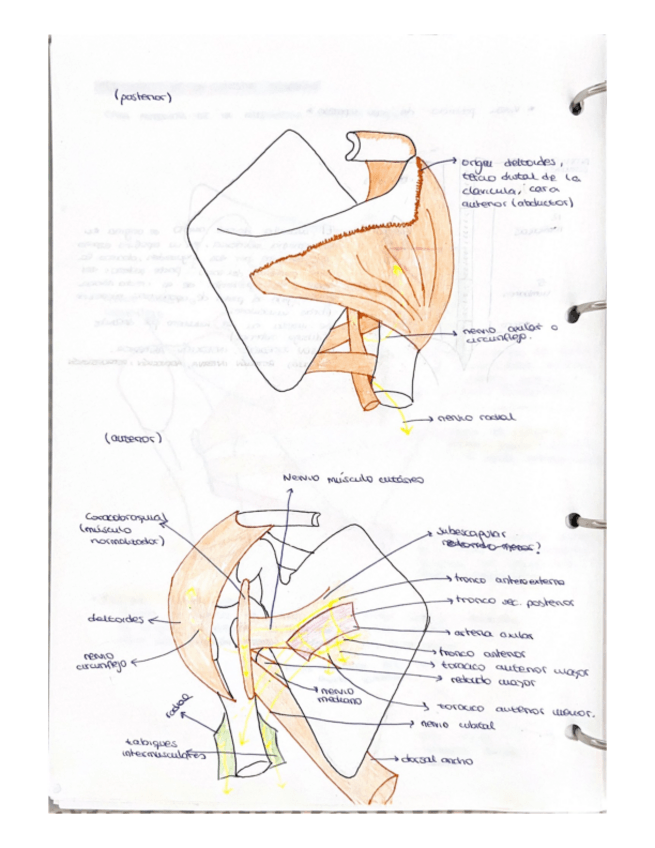 (posterior)
origen deltoides,
tercio distal de la
clavícula, cara
anterior (abductor)
nervio axilar o
circunflejo.
nervio radial
(anterior)
Nervio músculo cutáneo
Coracobraquial
(músculo
normalizador)
subescapular
redondo menor?
tronco anteroexterno
tronco sec. posterior
deltoides
arteria axilar
tronco anterior
nervio
circunflejo
torácico anterior mayor
redondo mayor
nervio
mediano
radial
torácico anterior menor.
nervio cubital
tabiques
intermusculares
dorsal ancho